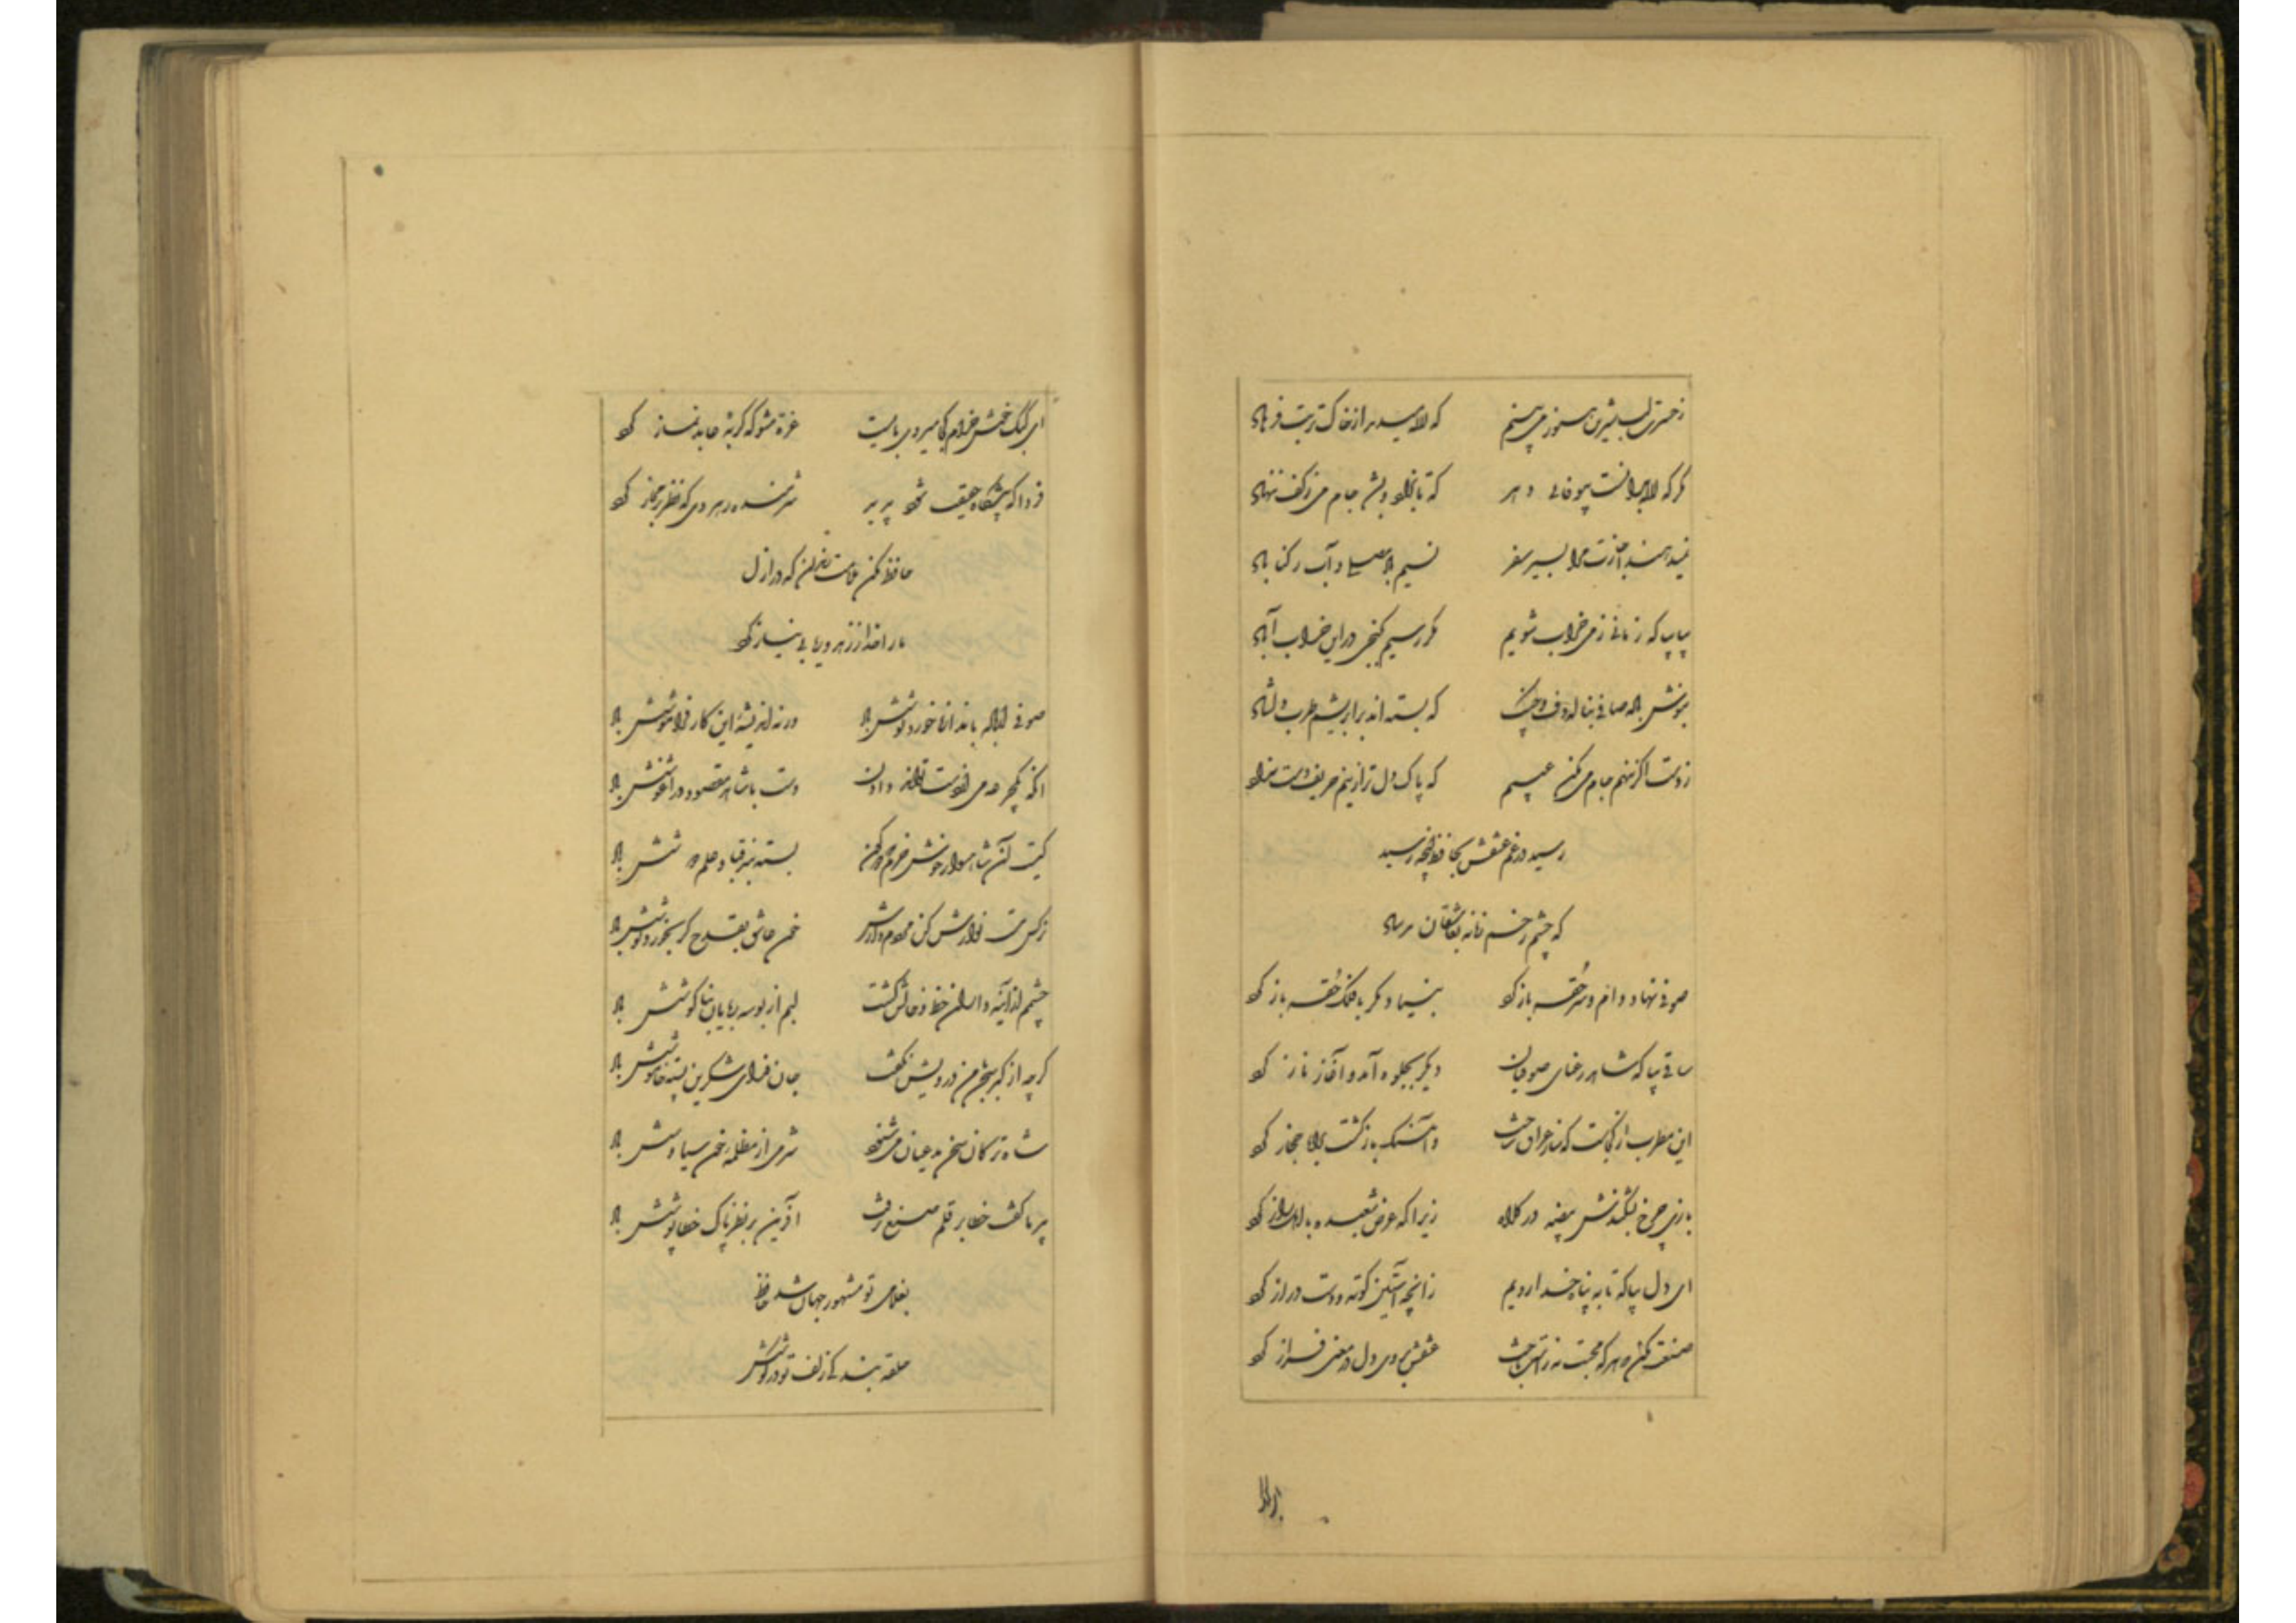 ز حسرت لب شیرین هنوز می‌بینم که لاله میدمد از خاک تربت فرهاد
مگر که لاله بدانست بیوفائی دهر که تا بزاد و بشد جام می ز کف ننهاد
نمیدهند اجازت مرا بسیر سفر نسیم باد مصلی و آب رکن آباد
بیا بیا که زمانی ز می خراب شویم مگر رسیم بگنجی در این خراب آباد
بنوش باده صافی بناله دف و چنگ که بسته‌اند بر ابریشم طرب دلشاد
ز دست اگر ننهم جام می مکن عیبم که پاک‌دل‌تر ازینم حریف دست نداد
رسید در غم عشقش بحافظ آنچه رسید
که چشم زخم زمانه بعاشقان مرساد
صوفی نهاد دام و سر حقه باز کرد بنیاد مکر با فلک حقه باز کرد
ساقی بیا که شاهد رعنای صوفیان دیگر بجلوه آمد و آغاز ناز کرد
این مطرب از کجاست که ساز عراق ساخت و آهنگ بازگشت براه حجاز کرد
بازی چرخ بشکندش بیضه در کلاه زیرا که عرض شعبده با اهل راز کرد
ای دل بیا که تا به پناه خدا رویم زآنچه آستین کوته و دست دراز کرد
صنعت مکن که هر که محبت نه راست باخت عشقش بروی دل در معنی فراز کرد
ای کبک خوش خرام کجا میروی بایست غره مشو که گربه عابد نماز کرد
فردا که پیشگاه حقیقت شود پدید شرمنده رهروی که نظر بر مجاز کرد
حافظ مکن ملامت رندان که در ازل
ما را خدا ز زهد و ریا بی نیاز کرد
صوفی ار باده باندازه خورد نوشش باد ورنه اندیشه این کار فراموشش باد
آنکه یکجرعه می از دست تواند دادن دست با شاهد مقصود در آغوشش باد
کیست آن شاهسوار خوش خرم که
نرگس مست نوازش کن مردم دارش خون عاشق بقدح گر بخورد نوشش باد
چشمم از آینه‌داران خط و خالش گشت لبم از بوسه ربایان بناگوشش باد
گرچه از کبر سخن با من درویش نگفت جان فدای شکرین پسته خاموشش باد
شاه ترکان سخن مدعیان می‌شنود شرمی از مظلمه خون سیاوشش باد
پیر ما گفت خطا بر قلم صنع نرفت آفرین بر نظر پاک خطا پوشش باد
بغلامی تو مشهور جهان شد حافظ
حلقه بندگی زلف تو در گوشش